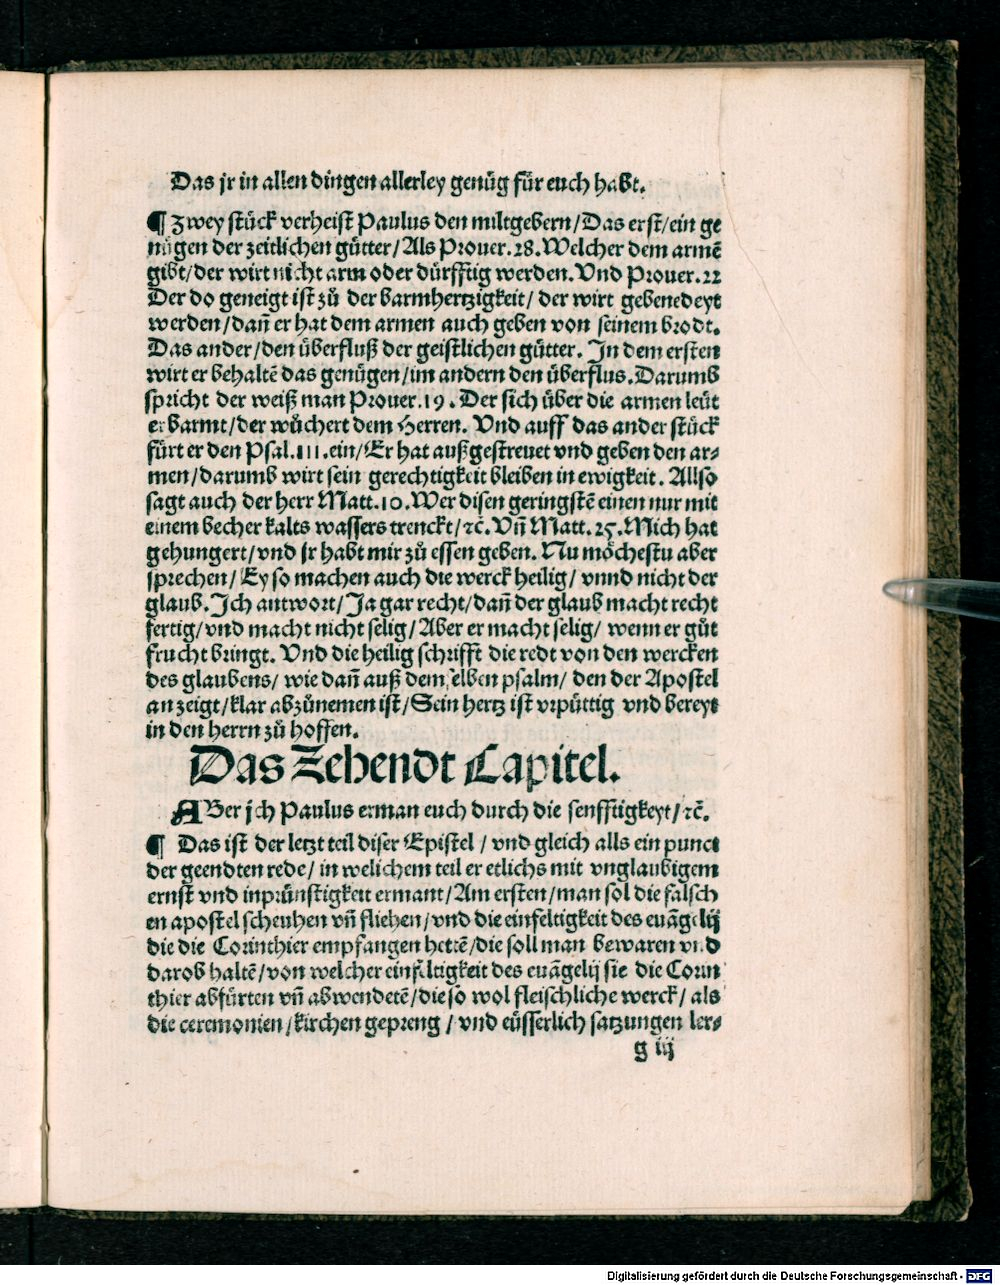 Das jr in allen dingen allerley genůg für euch habt.
¶ Zwey stück verheist Paulus den miltgebern/Das erst/ein ge
nůgen der zeitlichen gůtter/Als Prouer.28.Welcher dem armē
gibt/der wirt nicht arm oder dürfftig werden.Vnd Prouer.22
Der do geneigt ist zů der barmhertzigkeit/ der wirt gebenedeyt
werden/dañ er hat dem armen auch geben von seinem brodt.
Das ander/den überfluß der geistlichen gůtter. In dem ersten
wirt er behaltē das genůgen/im andern den überflus.Darumb
spricht der weiß man Prouer.19. Der sich über die armen leüt
erbarmt/der wůchert dem Herren. Vnd auff das ander stück
fürt er den Psal.111.ein/Er hat außgestreuet vnd geben den ar-
men/darumb wirt sein gerechtigkeit bleiben in ewigkeit. Allso
sagt auch der herr Matt.10.Wer disen geringstē einen nur mit
einem becher kalts wassers trenckt/ꝛc̄.Vñ Matt.25.Mich hat
gehungert/vnd jr habt mir zů essen geben. Nu mőchestu aber
sprechen/Ey so machen auch die werck heilig/ vnnd nicht der
glaub.Ich antwort/Ja gar recht/dañ der glaub macht recht
fertig/vnd macht nicht selig/Aber er macht selig/ wenn er gůt
frucht bringt. Vnd die heilig schrifft die redt von den wercken
des glaubens/ wie dañ auß dem selben psalm/ den der Apostel
an zeigt/klar abzůnemen ist/Sein hertz ist vrpüttig vnd bereyt
in den herrn zů hoffen.
Das Zehendt Capitel.
ABer jch Paulus erman euch durch die senfftigkeyt/ꝛc̄.
¶ Das ist der letzt teil diser Epistel / vnd gleich alls ein punct
der geendten rede/ in welichem teil er etlichs mit vnglaubigem
ernst vnd inprünstigkeit ermant/Am ersten/man sol die falsch
en apostel scheuhen vñ fliehen/vnd die einfeltigkeit des euāgelij
die die Corinthier empfangen hettē/die soll man bewaren vnd
darob haltē/von welcher einfeltigkeit des euāgelij sie die Corin
thier abfürten vñ abwendetē/die so wol fleischliche werck/ als
die ceremonien/kirchen gepreng / vnd eüsserlich satzungen ler-
g iij
Digitalisierung gefördert durch die Deutsche Forschungsgemeinschaft - DFG